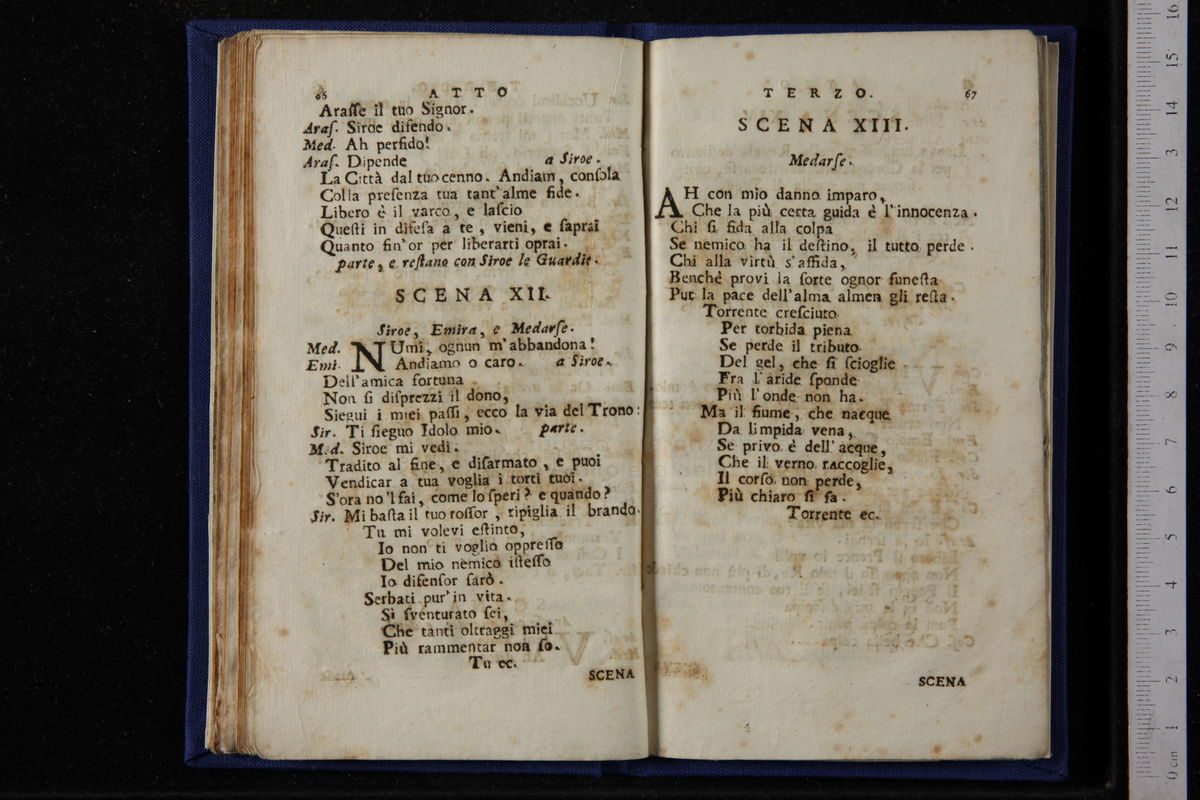 66 ATTO
Araſſe il tuo Signor.
Araſ. Siroe difendo.
Med. Ah perfido!
Araſ. Dipende a Siroe.
La Città dal tuo cenno. Andiam, conſola
Colla preſenza tua tant'alme fide.
Libero è il varco, e laſcio
Queſti in difeſa a te, vieni, e ſaprai
Quanto fin'or per liberarti oprai.
parte, e reſtano con Siroe le Guardie.
SCENA XII.
Siroe, Emira, e Medarſe.
Med. NUmi, ognun m'abbandona!
Emi. Andiamo o caro. a Siroe.
Dell'amica fortuna
Non ſi diſprezzi il dono,
Siegui i miei paſſi, ecco la via del Trono:
Sir. Ti ſieguo Idolo mio. parte.
Med. Siroe mi vedi.
Tradito al fine, e diſarmato, e puoi
Vendicar a tua voglia i torti tuoi.
S'ora no'l fai, come lo ſperi? e quando?
Sir. Mi baſta il tuo roſſor, ripiglia il brando.
Tu mi volevi eſtinto,
Io non ti voglio oppreſſo
Del mio nemico iſteſſo
Io difenſor ſarò.
Serbati pur'in vita.
Sì ſventurato ſei,
Che tanti oltraggi miei
Più rammentar non ſo.
Tu ec.
SCENA
TERZO. 67
SCENA XIII.
Medarſe.
AH con mio danno imparo,
Che la più certa guida è l'innocenza.
Chi ſi fida alla colpa
Se nemico ha il deſtino, il tutto perde.
Chi alla virtù s'affida,
Benchè provi la ſorte ognor funeſta
Pur la pace dell'alma almen gli reſta.
Torrente creſciuto
Per torbida piena
Se perde il tributo
Del gel, che ſi ſcioglie
Fra l'aride ſponde
Più l'onde non ha.
Ma il fiume, che nacque
Da limpida vena,
Se privo è dell'acque,
Che il verno raccoglie,
Il corſo non perde,
Più chiaro ſi fa.
Torrente ec.
SCENA
0 cm 1 2 3 4 5 6 7 8 9 10 11 12 13 14 15 16